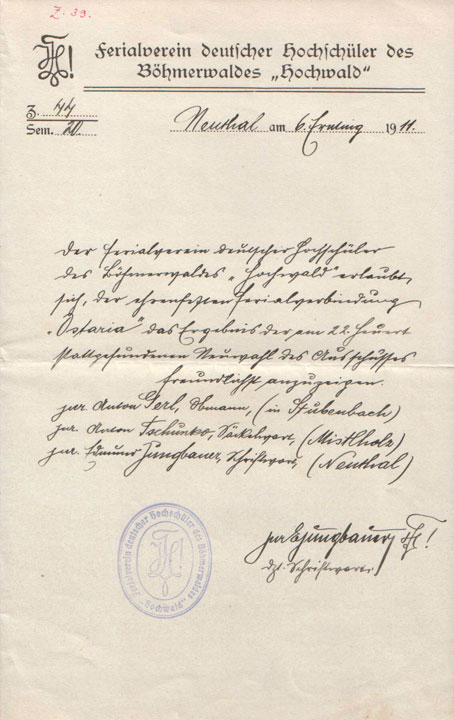 Z. 39.
Ferialverein deutscher Hochschüler des
Böhmerwaldes „Hochwald"
Z. 44
Sem. 20.
Neuthal am 6. Ernting 1911.
Der Ferialverein deutscher Hochschüler
des Böhmerwaldes „Hochwald" erlaubt
sich, der ehrenfesten Ferialverbindung
„Ostaria" das Ergebnis der am 22. Heuert
stattgefundenen Neuwahl des Ausschusses
freundlichst anzuzeigen.
jur. Anton Gerl, Obmann, (in Stubenbach)
jur. Anton Tschunko, Säckelwart, (Mistlholz)
jur. Edmund Jungbauer, Schriftwart, (Neuthal)
jur EJungbauer
dzt. Schriftwart.
Ferialverein deutscher Hochschüler des Böhmerwaldes
„Hochwald"